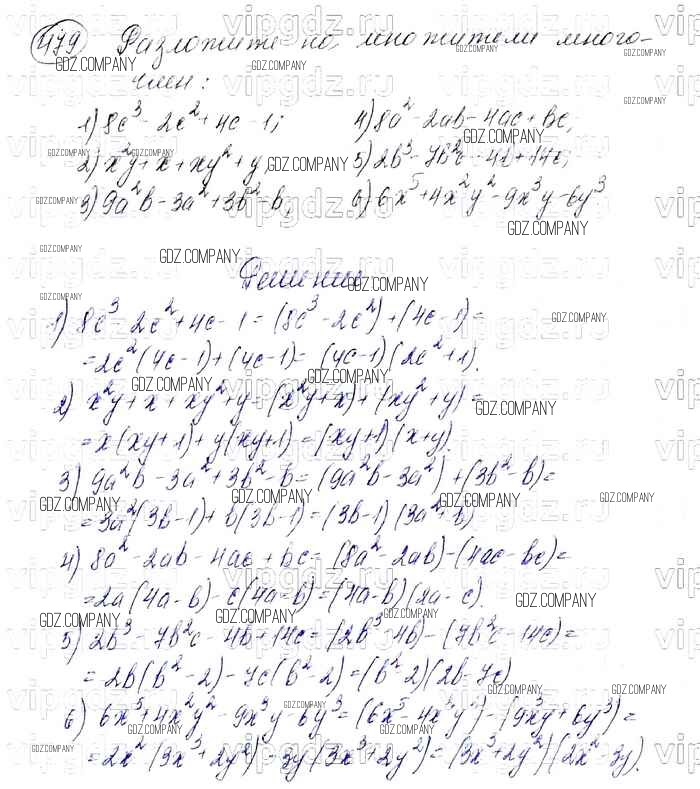 479 Разложите на множители много-
член:
1) 8c³ - 2c² + 4c - 1; 4) 8a² - 2ab - 4ac + bc;
2) x²y + x + xy² + y; 5) 2b³ - 7b²c - 4b + 14c;
3) 9a²b - 3a² + 3b² - b; 6) 6x⁵ + 4x²y² - 9x³y - 6y³
Решение
1) 8c³ - 2c² + 4c - 1 = (8c³ - 2c²) + (4c - 1) =
= 2c²(4c - 1) + (4c - 1) = (4c - 1)(2c² + 1).
2) x²y + x + xy² + y = (x²y + x) + (xy² + y) =
= x(xy + 1) + y(xy + 1) = (xy + 1)(x + y).
3) 9a²b - 3a² + 3b² - b = (9a²b - 3a²) + (3b² - b) =
= 3a²(3b - 1) + b(3b - 1) = (3b - 1)(3a² + b)
4) 8a² - 2ab - 4ac + bc = (8a² - 2ab) - (4ac - bc) =
= 2a(4a - b) - c(4a - b) = (4a - b)(2a - c).
5) 2b³ - 7b²c - 4b + 14c = (2b³ - 4b) - (7b²c - 14c) =
= 2b(b² - 2) - 7c(b² - 2) = (b² - 2)(2b - 7c)
6) 6x⁵ + 4x²y² - 9x³y - 6y³ = (6x⁵ - 4x²y²) - (9x³y + 6y³) =
= 2x²(3x³ + 2y²) - 3y(3x³ + 2y²) = (3x³ + 2y²)(2x² - 3y).